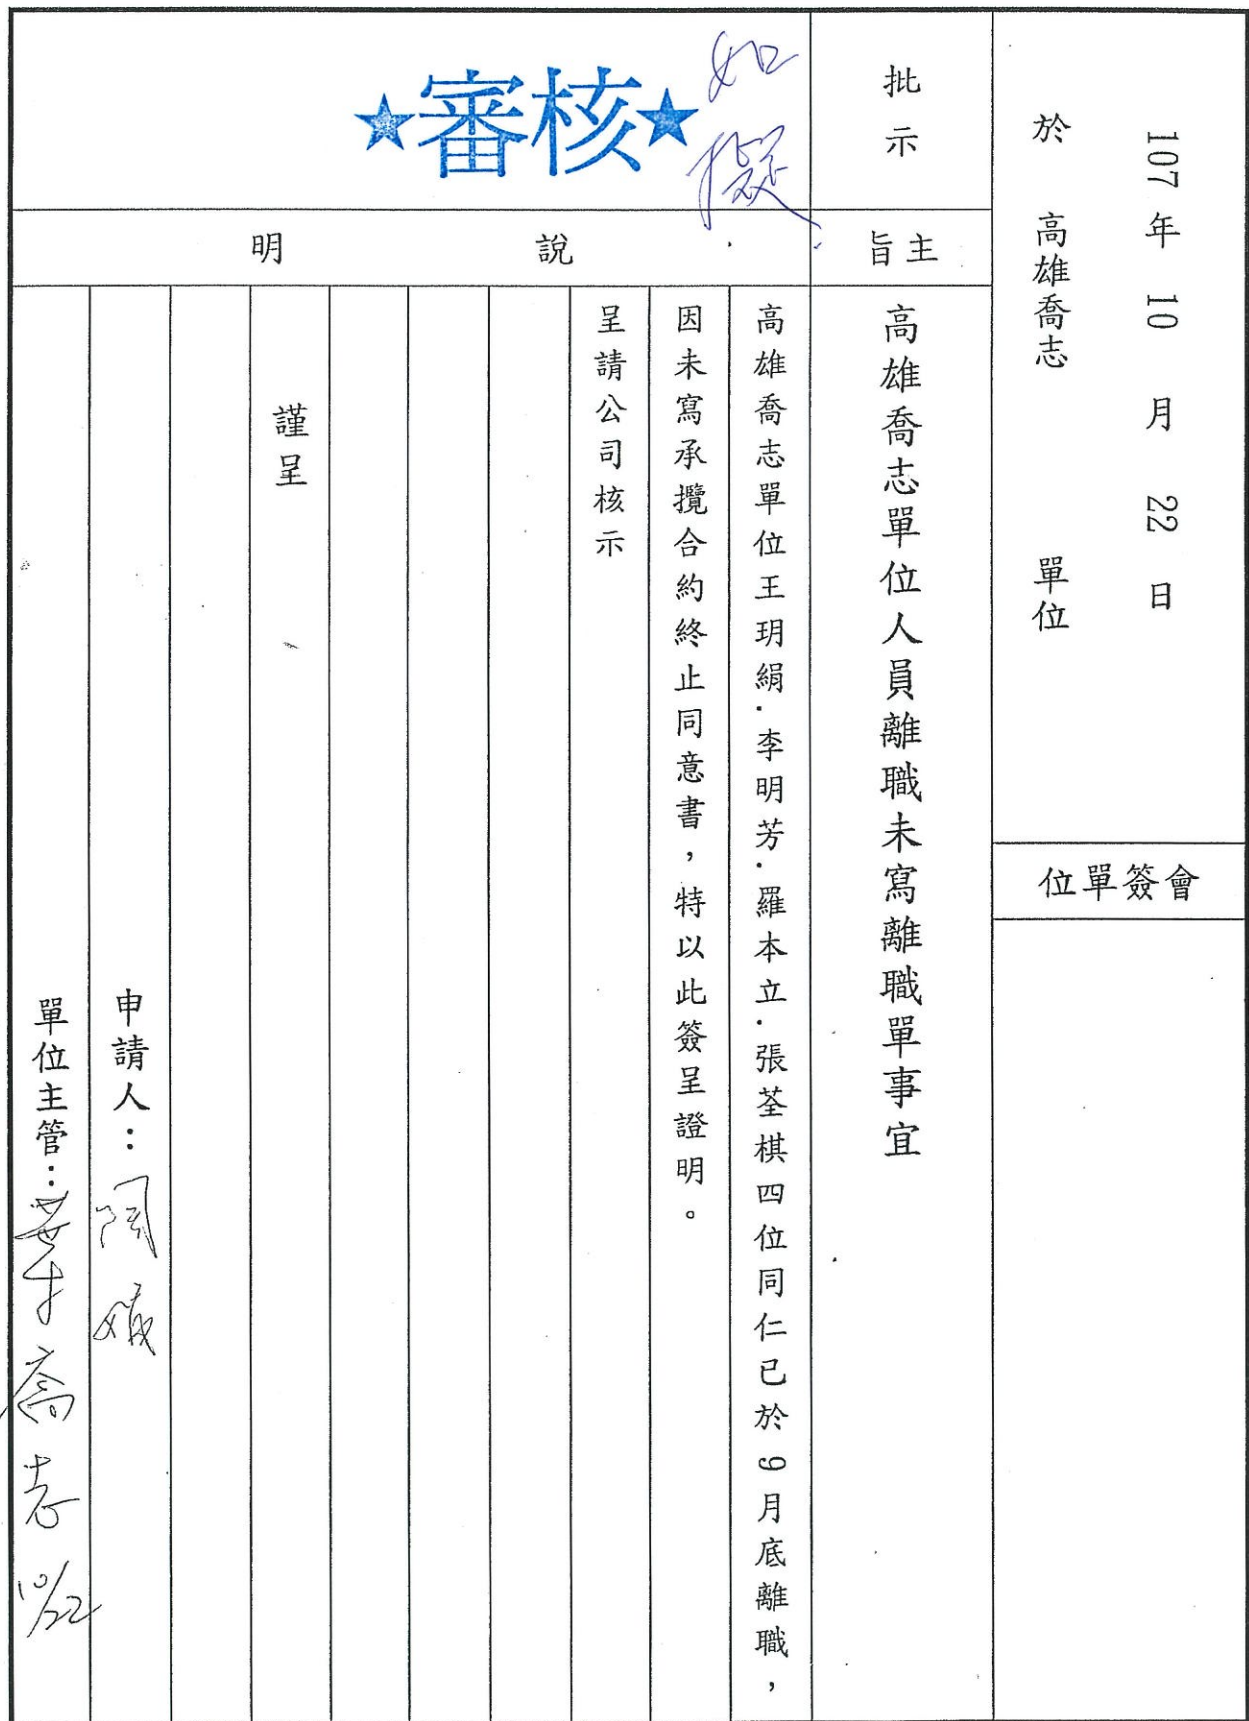 107 年 10 月 22 日
於 高雄喬志 單位
會簽單位
批示
如擬
★審核★
主旨
高雄喬志單位人員離職未寫離職單事宜
說明
高雄喬志單位王玥絹.李明芳.羅本立.張荃棋四位同仁已於9月底離職，
因未寫承攬合約終止同意書，特以此簽呈證明。
呈請公司核示
謹呈
申請人：
單位主管：葉喬志 10/22